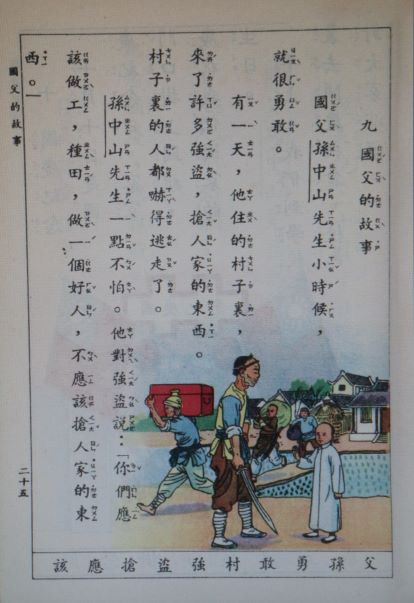 九 國父的故事
國父孫中山先生小時候，
就很勇敢。
有一天，他住的村子裏，
來了許多強盜，搶人家的東西。
村子裏的人都嚇得逃走了。
孫中山先生一點不怕。他對強盜說：「你們應
該做工，種田，做一個好人，不應該搶人家的東
西。」
國父的故事
二十五
父孫勇敢村強盜搶應該